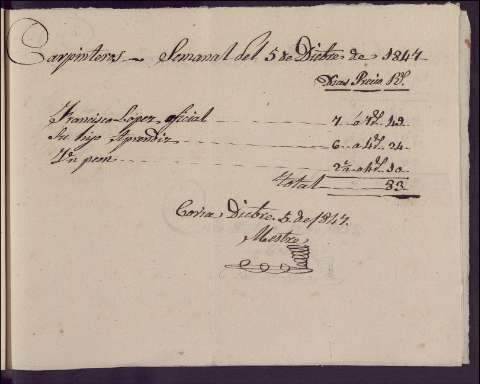 Carpinteros Semanal del 5 de Dicbre de 1847
Dias Precio Rs
Francisco Lopez oficial 7 a 7 rs 49
Su hijo Aprendiz 6 a 4 rs 24
Un peon 2½ a 4 rs 10
Total 83
Coria Dicbre 5 de 1847.
Mestre